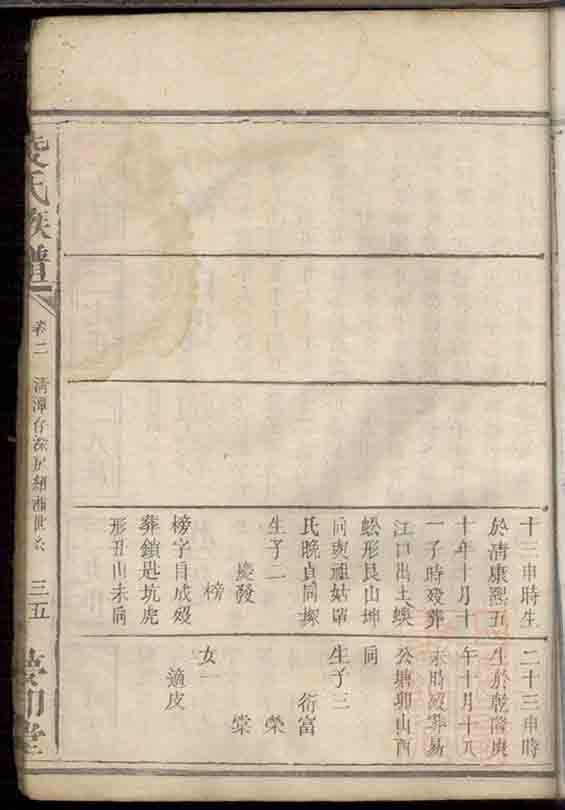 十三申時生
於清康熙五
十年十月十
一子時殁葬
江口出土
蚣形艮山坤
向
氏晚貞同
生子二
慶發
榜
榜字目成殁
葬鎖匙坑虎
形丑山未向
二十三申時
生於乾隆庚
年十月十八
未時殁葬
公塘卯山酉
向
生子三
衍富
榮
棠
女一
適皮
氏族譜
卷二
三五
堂